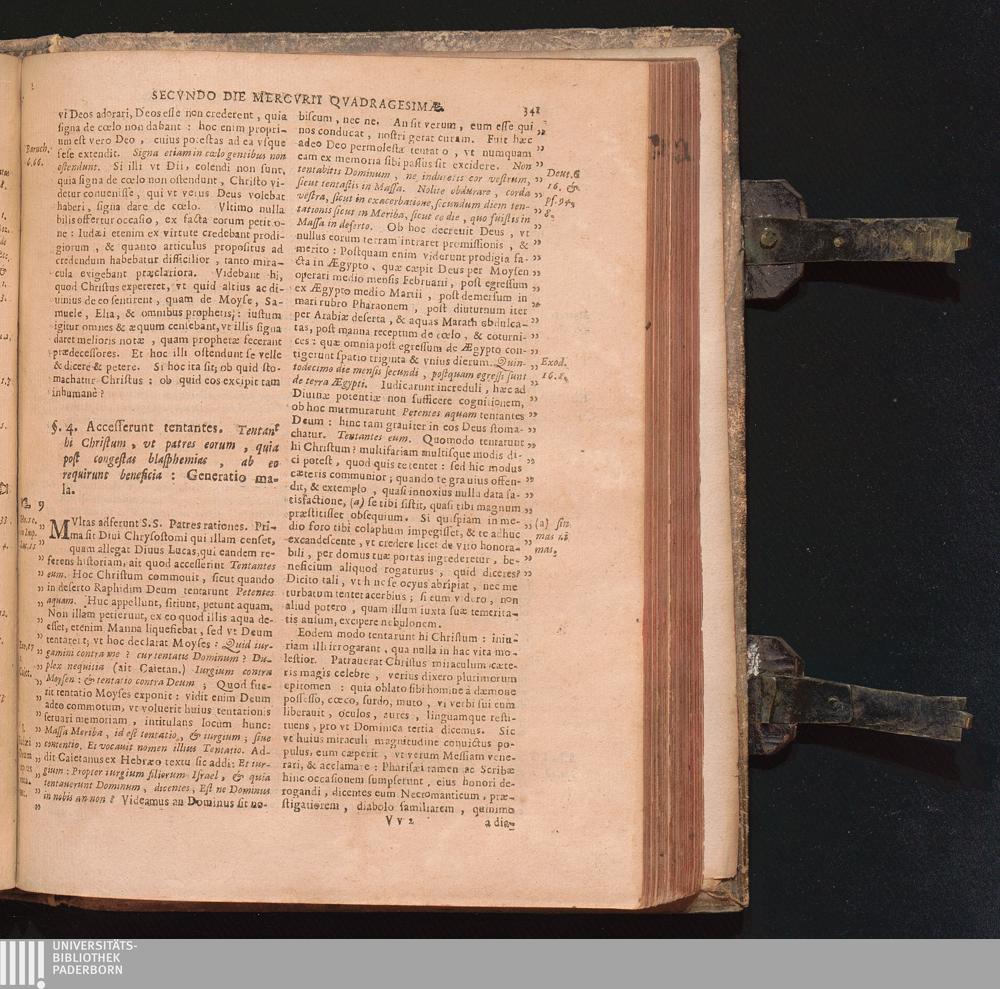 SECVNDO DIE MERCVRII QVADRAGESIMÆ. 341
vi Deos adorari, Deos esse non crederent, quia
signa de cœlo non dabant : hoc enim propri-
um est vero Deo , cuius potestas ad ea vsque
sese extendit. Signa etiam in cœlo gentibus non
ostendunt. Si illi vt Dii, colendi non sunt,
quia signa de cœlo non ostendunt , Christo vi-
detur conuenisse , qui vt verus Deus volebat
haberi, signa dare de cœlo. Vltimo nulla
bilis offertur occasio , ex facta eorum petitio-
ne : Iudæi etenim ex virtute credebant prodi-
giorum , & quanto articulus propositus ad
credendum habebatur difficilior , tanto mira-
cula exigebant præclariora. Videbant hi,
quod Christus expereret, vt quid altius ac di-
uinius de eo sentirent , quam de Moyse, Sa-
muele, Elia, & omnibus prophetis; : iustum
igitur omnes & æquum censebant, vt illis signa
daret melioris notæ , quam prophetæ fecerant
prædecessores. Et hoc illi ostendunt se velle
& dicere & petere. Si hoc ita sit, ob quid sto-
machatur Christus : ob quid eos excipit tam
inhumane ?
Baruch.
6.66.
§. 4. Accesserunt tentantes. Tentant
hi Christum , vt patres eorum , quia
post congestas blasphemias , ab eo
requirunt beneficia : Generatio ma-
la.
MVltas adferunt S.S. Patres rationes. Pri-
ma sit Diui Chrysostomi qui illam censet,
quam allegat Diuus Lucas, qui eandem re-
ferens historiam, ait quod accesserint Tentantes
eum. Hoc Christum commouit , sicut quando
in deserto Raphidim Deum tentarunt Petentes
aquam. Huc appellunt, sitiunt, petunt aquam.
Non illam petierunt, ex eo quod illis aqua de-
esset, etenim Manna liquefiebat , sed vt Deum
tentarent; vt hoc declarat Moyses : Quid iur-
gamini contra me ? cur tentatis Dominum ? Du-
plex nequitia (ait Caietan.) Iurgium contra
Moysen : & tentatio contra Deum ; Quod fue-
rit tentatio Moyses exponit : vidit enim Deum
adeo commotum, vt voluerit huius tentationis
seruari memoriam , intitulans locum hunc:
Massa Meriba , id est tentatio , & iurgium ; siue
contentio. Et vocauit nomen illius Tentatio. Ad-
dit Caietanus ex Hebræo textu sic addi: Et iur-
gium : Propter iurgium filiorum Israel , & quia
tentauerunt Dominum , dicentes, Est ne Dominus
in nobis an non ? Videamus an Dominus sit no-
biscum , nec ne. An sit verum , eum esse qui
nos conducat , nostri gerat curam. Fuit hæc
adeo Deo permolesta tentatio , vt numquam
eam ex memoria sibi passus sit excidere. Non
tentabitis Dominum , ne induretis cor vestrum,
sicut tentastis in Massa. Nolite obdurare , corda
vestra, sicut in exacerbatione, secundum diem ten-
tationis sicut in Meriba, sicut eo die , quo fuistis in
Massa in deserto. Ob hoc decreuit Deus , vt
nullus eorum terram intraret promissionis , &
merito : Postquam enim viderunt prodigia fa-
cta in Ægypto , quæ cœpit Deus per Moysen
operari medio mensis Februarii , post egressum
ex Ægypto medio Martii , post demersum in
mari rubro Pharaonem , post diuturnum iter
per Arabiæ deserta , & aquas Marath obdulca-
tas, post manna receptum de cœlo , & coturni-
ces : quæ omnia post egressum de Ægypto con-
tigerunt spatio triginta & vnius dierum. Quin-
todecimo die mensis secundi , postquam egressi sunt
de terra Ægypti. Iudicarunt increduli , hæc ad
Diuinæ potentiæ non sufficere cognitionem,
ob hoc murmurarunt Petentes aquam tentantes
Deum : hinc tam grauiter in eos Deus stoma-
chatur. Tentantes eum. Quomodo tentarunt
hi Christum? multifariam multisque modis di-
ci potest , quod quis tetentet : sed hic modus
cæteris communior; quando te grauius offen-
dit, & extemplo , quasi innoxius nulla data sa-
tisfactione, (a) se tibi sistit, quasi tibi magnum
præstitisset obsequium. Si quispiam in me-
dio foro tibi colaphum impegisset, & te adhuc
excandescente , vt credere licet de viro honora-
bili , per domus tuæ portas ingrederetur , be-
neficium aliquod rogaturus , quid diceres?
Dicito tali , vt hinc se ocyus abripiat , nec me
turbatum tentet acerbius ; si eum videro , non
aliud potero , quam illum iuxta suæ temerita-
tis ausum, excipere nebulonem.
Eodem modo tentarunt hi Christum : iniu-
riam illi irrogarant , qua nulla in hac vita mo-
lestior. Patrauerat Christus miraculum cæte-
ris magis celebre , verius dixero plurimorum
epitomen : quia oblato sibi homine à dæmone
possesso, cœco, surdo, muto , vi verbi sui eum
liberauit , oculos, aures , linguamque resti-
tuens , pro vt Dominica tertia dicemus. Sic
vt huius miraculi magnitudine conuictus po-
pulus, eum cæperit , vt verum Messiam vene-
rari, & acclamare : Pharisæi tamen ac Scribæ
hinc occasionem sumpserunt , eius honori de-
rogandi , dicentes eum Necromanticum , præ-
stigatiorem , diabolo familiarem , quinimo
Deut. 6
16. &
ps. 94.
8.
Exod.
16. 8.
V v 2 a dia-
UNIVERSITÄTS-
BIBLIOTHEK
PADERBORN